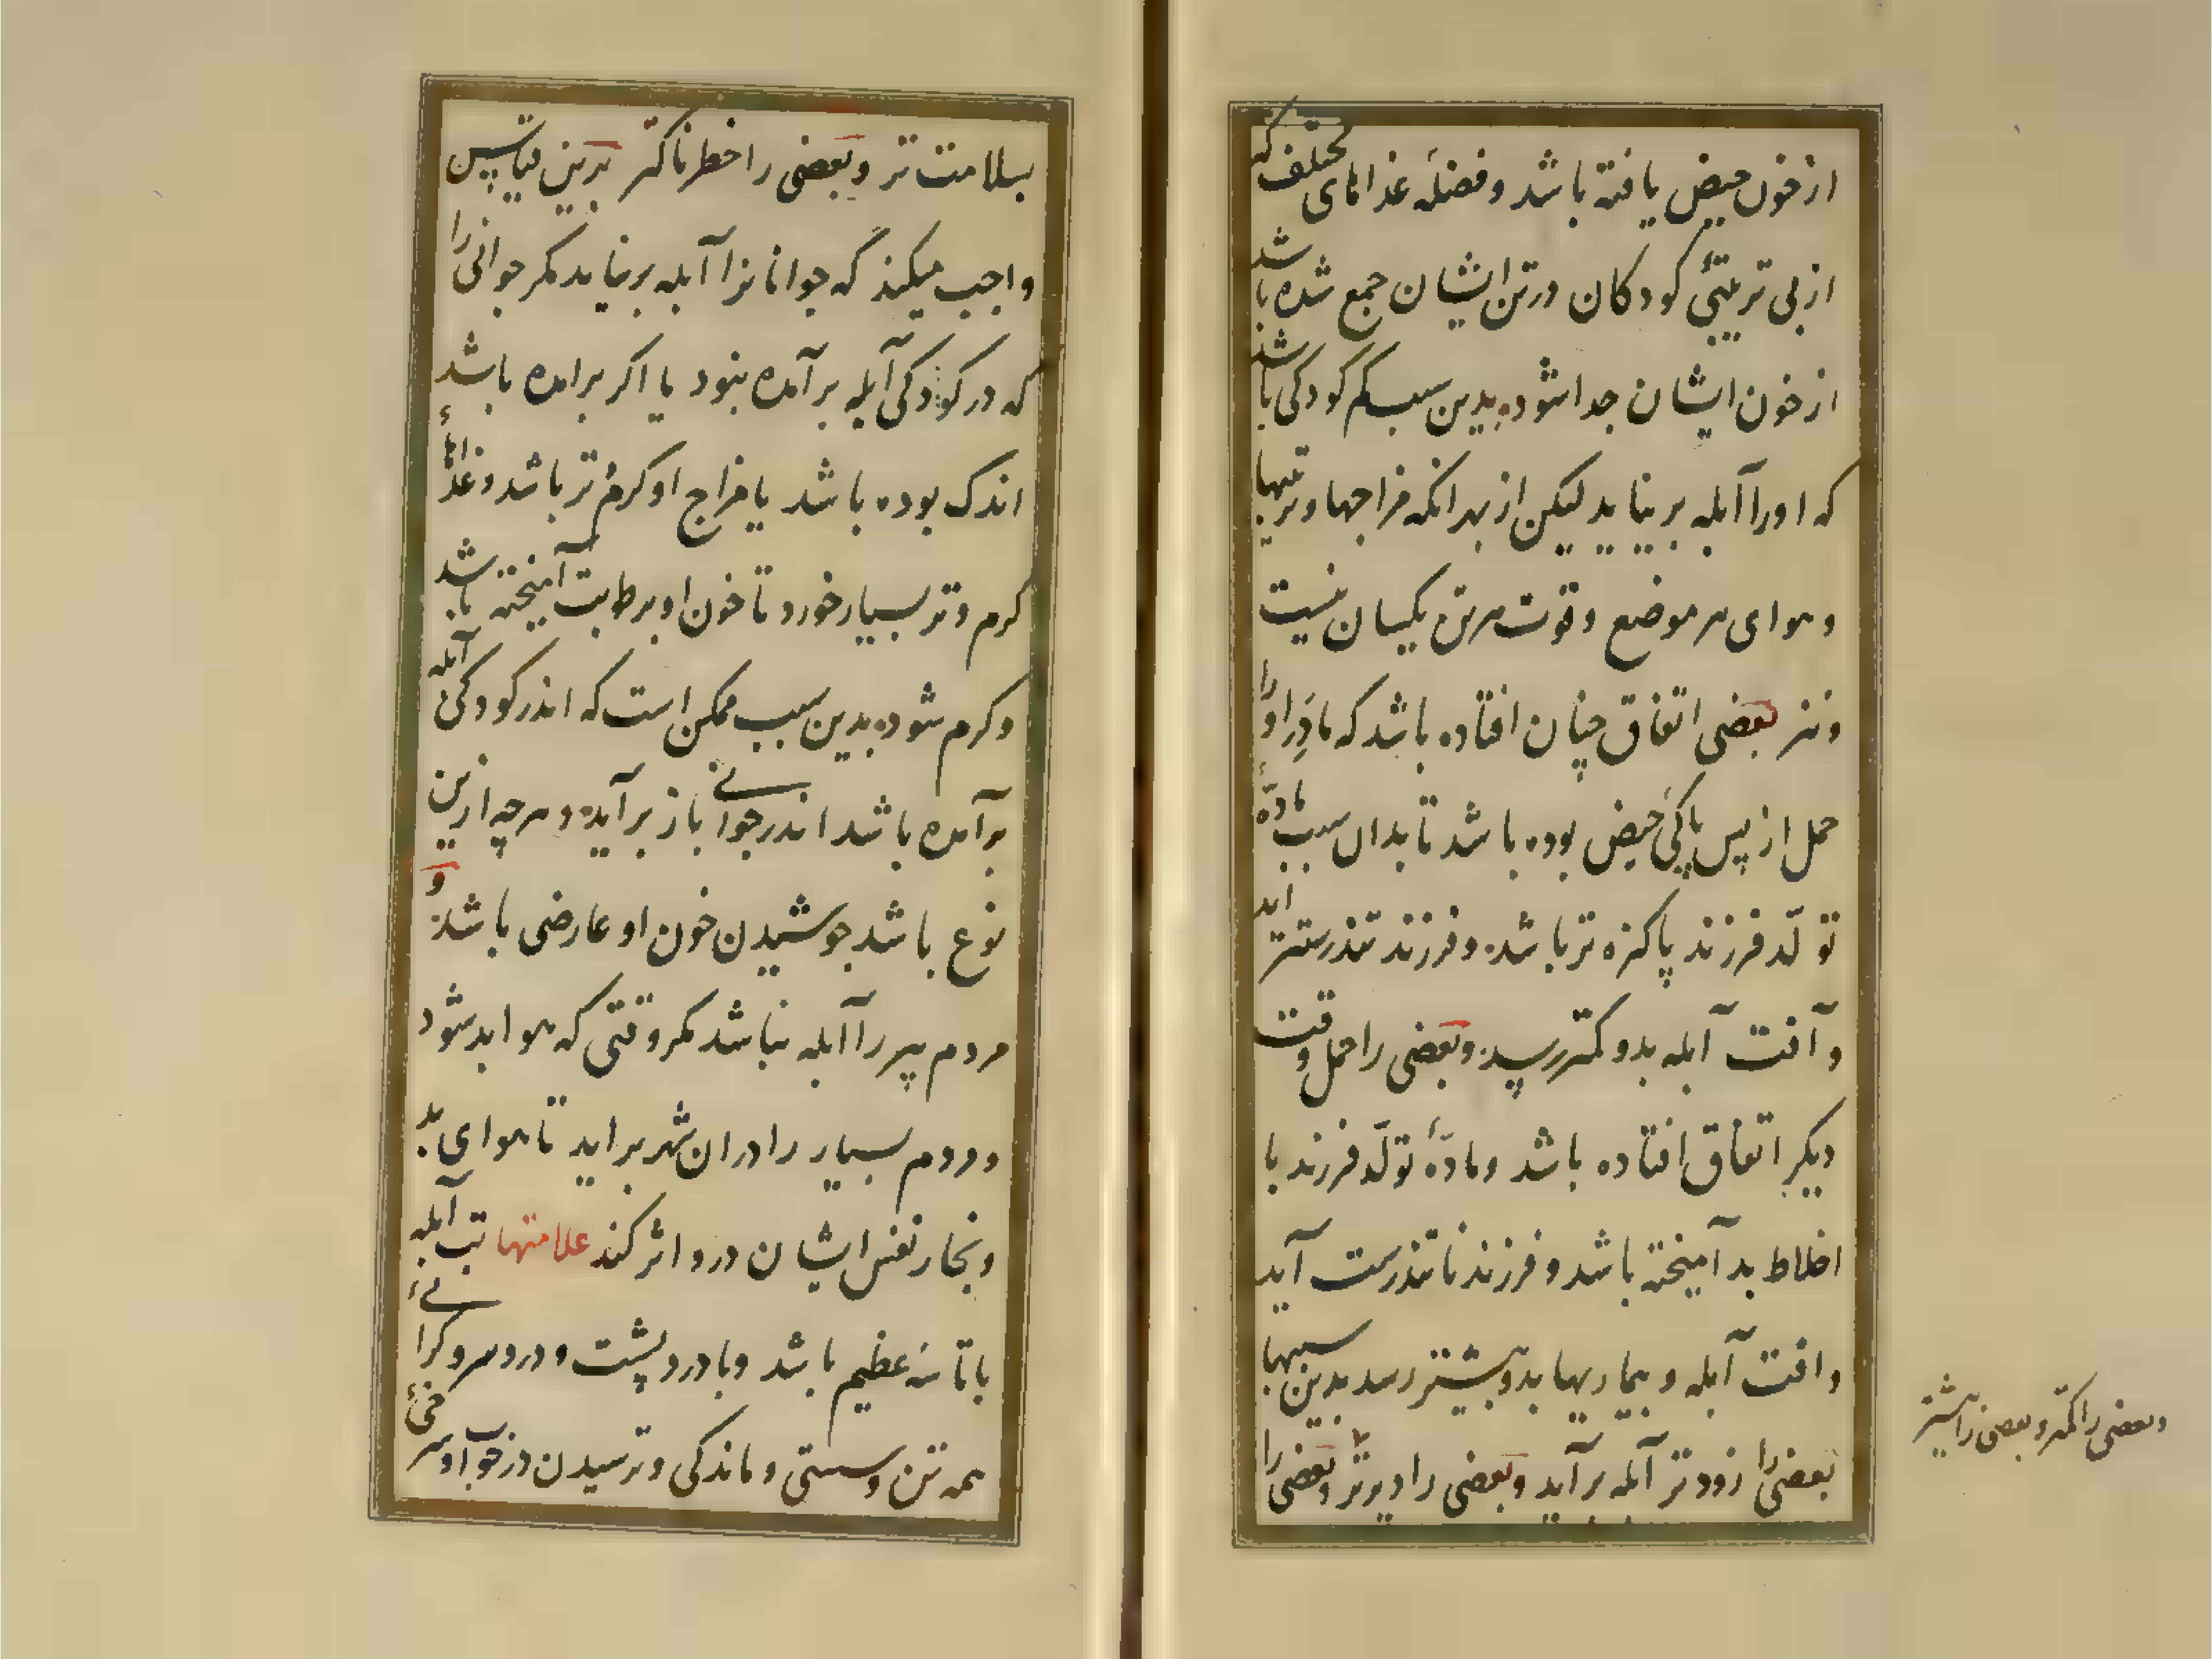 از خون حیض یافته باشد و فضلهٔ غذاهای مختلف که
از بی تربیتیٔ کودکان در تن ایشان جمع شده باشد
از خون ایشان جدا شود و بدین سبب کم کودکی باشد
که او را آبله برنیاید لیکن از بهر انکه مزاجها و ترتیبها
و هوای هر موضع و قوت هر تن یکسان نیست
و نیز بعضی اتفاق چنان افتاده باشد که مادر او را
حمل از پس پاکیٔ حیض بوده باشد تا بدان سبب مادّهٔ
تولّد فرزند پاکیزه تر باشد و فرزند تندرستتر اید
و آفت آبله بدو کمتر رسد و بعضی را حمل وقت
دیکر اتفاق افتاده باشد و مادّهٔ تولّد فرزند با
اخلاط بد آمیخته باشد و فرزند ناتندرست آید
و افت آبله و بیماریها بدو بیشتر رسد بدین سببها
بعضی را زودتر آبله برآید و بعضی را دیرتر و بعضی را
و بعضی را کمتر و بعضی را بیشتر
بسلامت تر و بعضی را خطرناکتر بدین قیاس پس
واجب میکند که جوانانرا آبله برنیاید مکر جوانی را
که در کودکی آبله برآمده نبود یا اکر برامده باشد
اندک بوده باشد یا مزاج او کرم تر باشد و غذاهاء
کرم و تر بسیار خورد تا خون او برطابت آمیخته باشد
و کرم شود و بدین سبب ممکن است که اندر کودکی آبله
برآمده باشد اندر جوانی باز برآید و هرچه ازین
نوع باشد جوشیدن خون او عارضی باشد و
مردم پیر را آبله نباشد مکر وقتی که هوا بد شود
و مردم بسیار را دران شهر براید تا هوای بد
و بخار نفس ایشان درو اثر کند علامتها تب آبله
با تاسه عظیم باشد و با درد پشت و درد سر و کرانیٔ
همه تن و سستی و ماندکی و ترسیدن در خواب و سرخیٔ